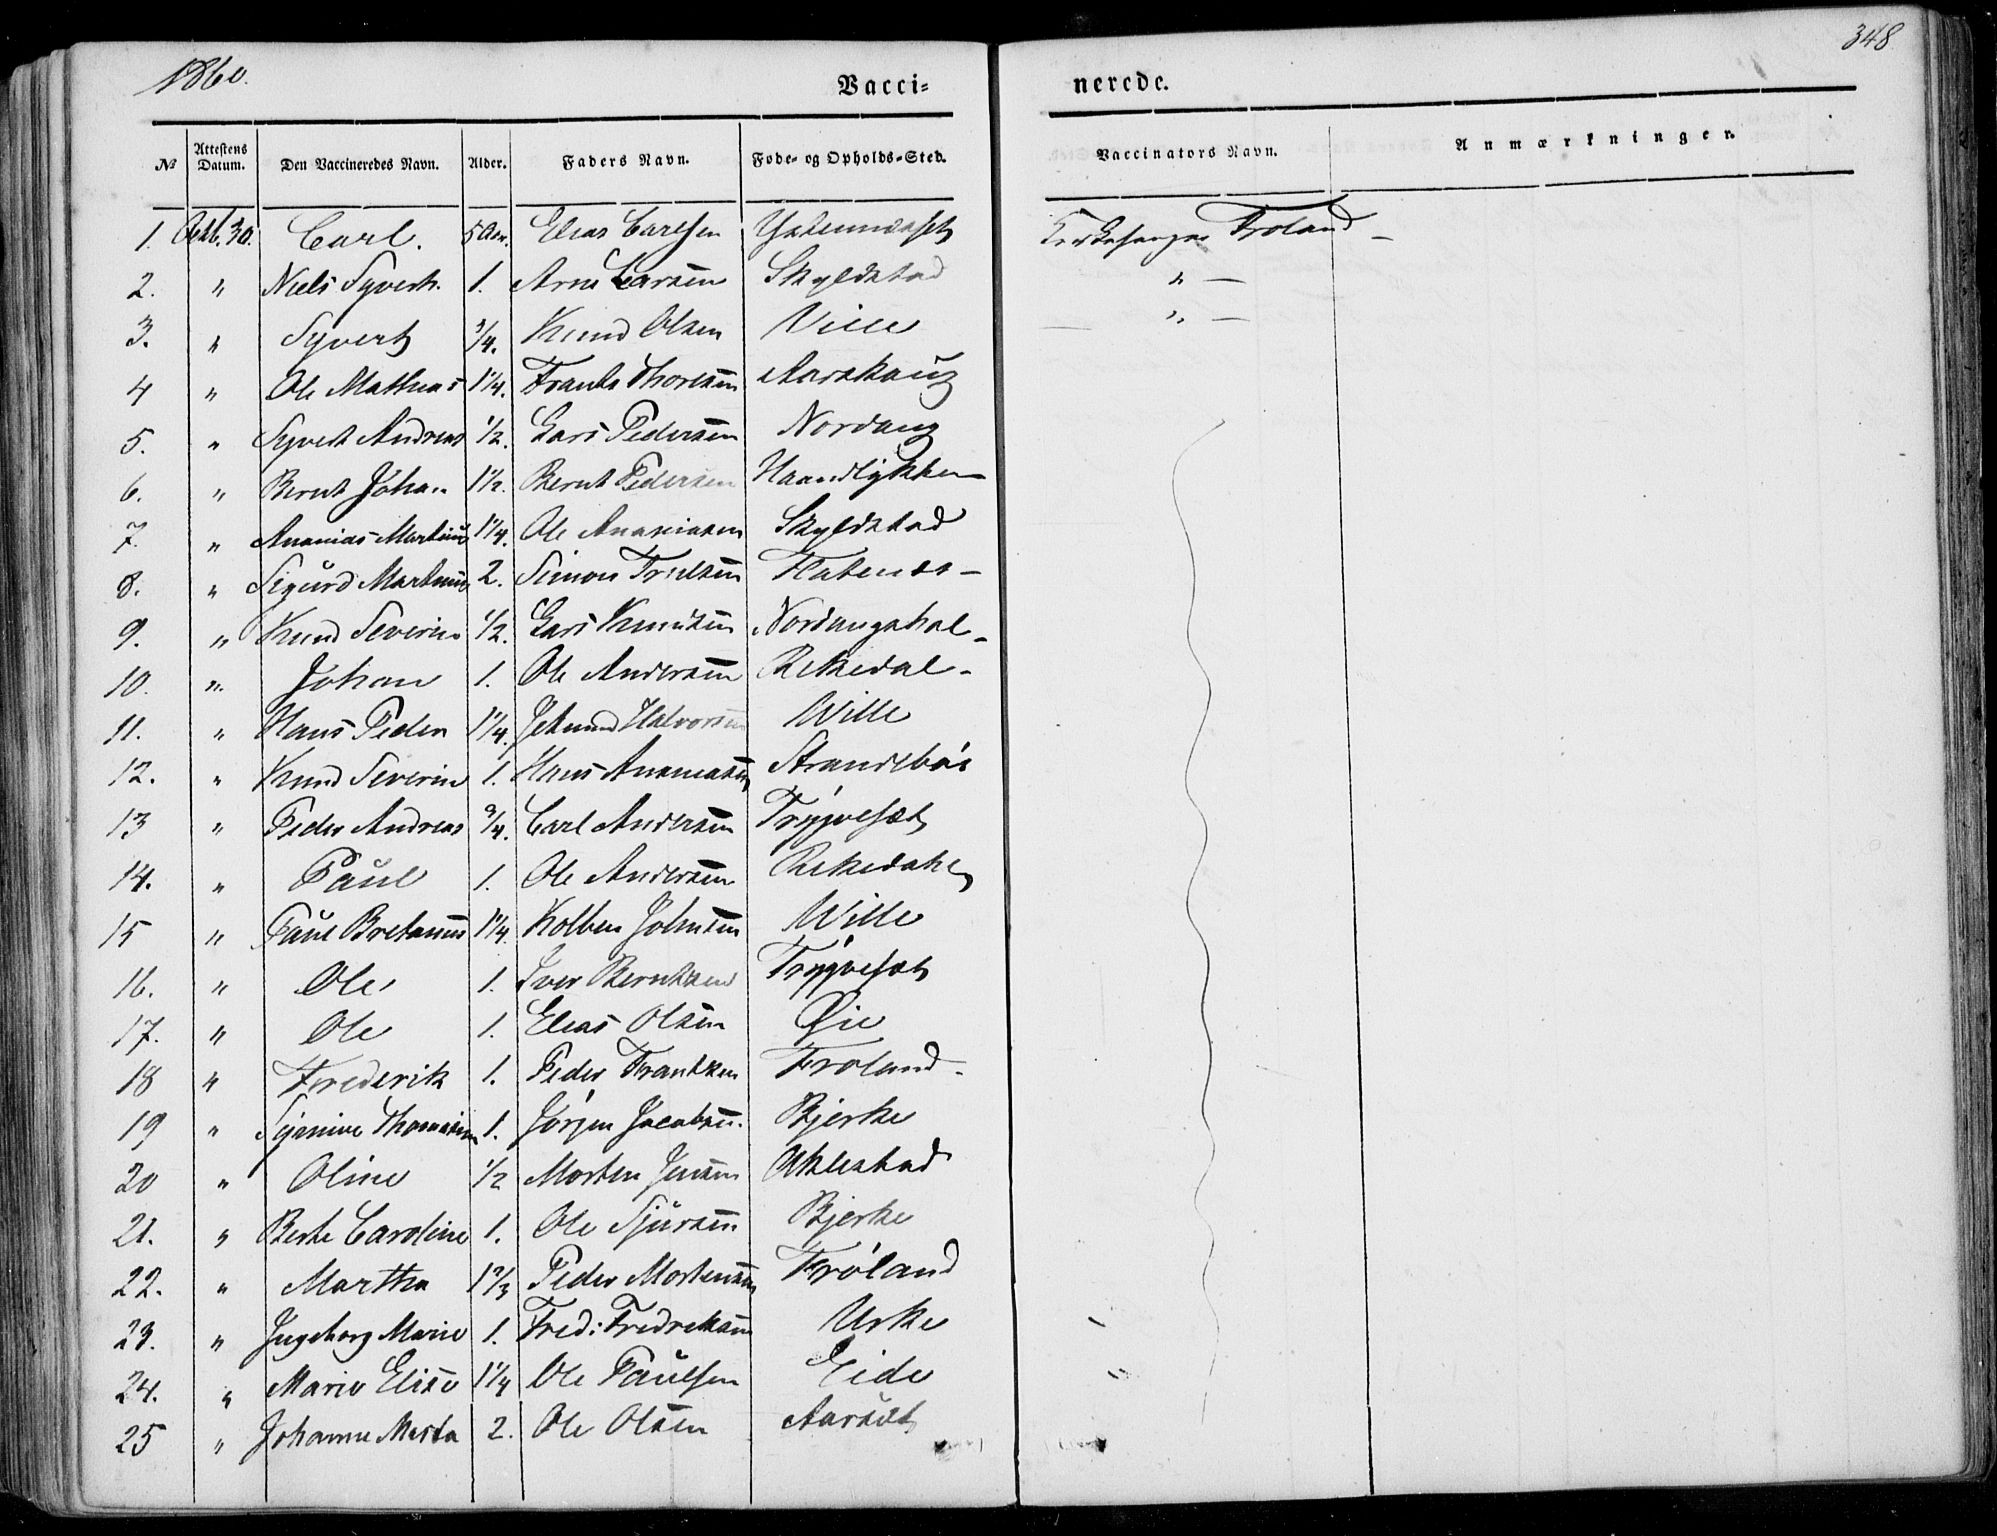 1860.
348
Vacci=
nerede.
No
Attestens Datum.
Den Vaccineredes Navn.
Alder.
Faders Navn.
Føde- og Opholds-Sted.
Vaccinators Navn.
Anmærkninger.
1. Octb. 30. Carl. 5 Aar. Elias Carlsen Kirkesanger Frøland -
2. " Niels Syvert. 1. Arne Larsen Skyldstad " -
3. " Syvert 3/4. Knud Olsen Ville " -
4 " Ole Mathias 1 1/4. Frants Thoresen Aarskaug
5. " Syvert Andreas 1/2. Lars Pedersen Nordang
6. " Bernt Johan 1 1/2. Bernt Pedersen Haandlykken
7. " Ananias Martinus 1 1/4. Ole Ananiasen Skyldstad
8. " Sigurd Martinus 2. Simon Trulsen Flatenes -
9. " Knud Severin 1/2. Lars Knudsen Nordangshal -
10. " Johan 1. Ole Andersen Rekkedal -
11. " Hans Peder 1 1/4. Jetmund Halvorsen Wille
12. " Knud Severin 1. Hans Ananiasen Strandebøe
13 " Peder Andreas 3/4. Carl Andersen Tryggvesæt
14. " Paul 1. Ole Andersen Rekkedahl
15 " Paul Bretanus 1 1/4. Kolben Johnsen Wille
16. " Ole 1. Iver Berntsen Tryggvesæt
17. " Ole 1. Elias Olsen Øie
18 " Frederik 1. Peder Frantzen Frøland -
19 " Thomasine 1. Jørgen Jacobsen. Bjerke
20 " Oline 1/2 Morten Jensen Aklestad
21. " Berte Caroline 1. Ole Sjursen Bjerke
22. " Martha 1 2/3 Peder Mortensen Frøland
23. " Ingeborg Marie 1. Fred: Fredreksen Urke
24. " Marie Elise 1 1/4 Ole Paulsen Eide
25 " Johanne Marta 2. Ole Olsen Aarsæt